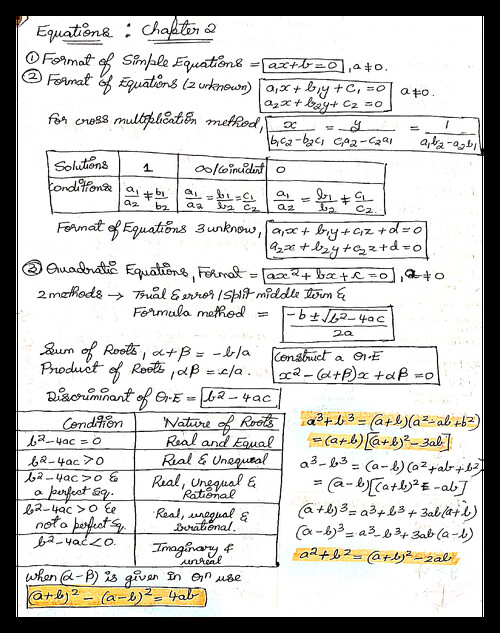 Equations : Chapter 2
① Format of Simple Equations = ax+b=0, a≠0.
② Format of Equations (2 unknown) a₁x + b₁y + c₁ = 0 a≠0.
a₂x + b₂y + c₂ = 0
For cross multiplication method, x/(b₁c₂-b₂c₁) = y/(c₁a₂-c₂a₁) = 1/(a₁b₂-a₂b₁)
Solutions 1 ∞/coincident 0
Conditions a₁/a₂ ≠ b₁/b₂ a₁/a₂ = b₁/b₂ = c₁/c₂ a₁/a₂ = b₁/b₂ ≠ c₁/c₂
Format of Equations 3 unknow, a₁x + b₁y + c₁z + d = 0
a₂x + b₂y + c₂z + d = 0
③ Quadratic Equations, Format = ax² + bx + c = 0, a≠0
2 methods → Trial & error / Split middle term &
Formula method = (-b ± √b²-4ac)/2a
Sum of Roots, α+β = -b/a Construct a Q.E
Product of Roots, αβ = c/a. x² - (α+β)x + αβ = 0
Discriminant of Q.E = b² - 4ac
Condition Nature of Roots
b²-4ac = 0 Real and Equal
b²-4ac > 0 Real & Unequal
b²-4ac > 0 & a perfect Sq. Real, Unequal & Rational
b²-4ac > 0 & not a perfect Sq. Real, unequal & irrational.
b²-4ac < 0. Imaginary & unreal
a³+b³ = (a+b)(a²-ab+b²)
= (a+b)[(a+b)²-3ab]
a³-b³ = (a-b)(a²+ab+b²)
= (a-b)[(a+b)²-ab]
(a+b)³ = a³+b³+3ab(a+b)
(a-b)³ = a³-b³+3ab(a-b)
a²+b² = (a+b)²-2ab
when (α-β) is given in Qⁿ use
(a+b)² - (a-b)² = 4ab